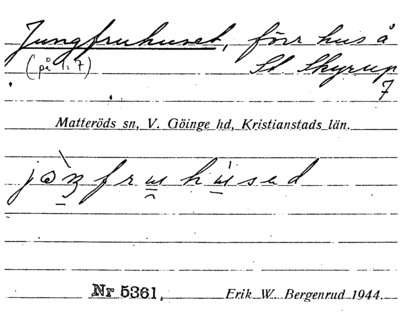 Jungfruhuset, förr hus å
(på 1:7) St Skyrup
7
Matteröds sn, V. Göinge hd, Kristianstads län.
Nr 5361. Erik W. Bergenrud 1944.